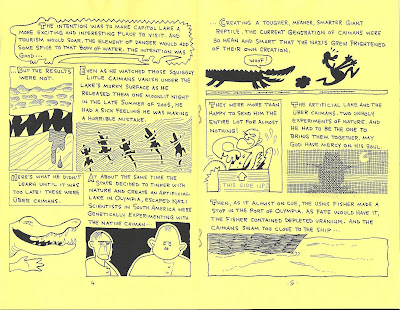 THE INTENTION WAS TO MAKE CAPITOL LAKE A
MORE EXCITING AND INTERESTING PLACE TO VISIT. AND
TOURISM WOULD SOAR. THE ELEMENT OF DANGER WOULD ADD
SOME SPICE TO THAT BODY OF WATER. THE INTENTION WAS
GOOD...
...BUT THE RESULTS
WERE NOT.
EVEN AS HE WATCHED THOSE SQUIGGLY
LITTLE CAIMANS VANISH UNDER THE
LAKE'S MURKY SURFACE AS HE
RELEASED THEM ONE MOONLIT NIGHT
IN THE LATE SUMMER OF 2005, HE
HAD A SICK FEELING HE WAS MAKING
A HORRIBLE MISTAKE.
HERE'S WHAT HE DIDN'T
LEARN UNTIL IT WAS
TOO LATE: THESE WERE
ÜBER CAIMANS.
AT ABOUT THE SAME TIME THE
STATE DECIDED TO TINKER WITH
NATURE AND CREATE AN ARTIFICIAL
LAKE IN OLYMPIA, ESCAPED NAZI
SCIENTISTS IN SOUTH AMERICA WERE
GENETICALLY EXPERIMENTING WITH
THE NATIVE CAIMAN...
4
...CREATING A TOUGHER, MEANER, SMARTER GIANT
REPTILE. THE CURRENT GENERATION OF CAIMANS WERE
SO MEAN AND SMART THAT THE NAZIS GREW FRIGHTENED
OF THEIR OWN CREATION.
WOOF!
THEY WERE MORE THAN
HAPPY TO SEND HIM THE
ENTIRE LOT FOR ALMOST
NOTHING!
THIS SIDE UP
THE ARTIFICIAL LAKE AND THE
ÜBER CAIMANS. TWO UNHOLY
EXPERIMENTS OF NATURE. AND
HE HAD TO BE THE ONE TO
BRING THEM TOGETHER. MAY
GOD HAVE MERCY ON HIS SOUL.
THEN, AS IF ALMOST ON CUE, THE USNS FISHER MADE A
STOP IN THE PORT OF OLYMPIA. AS FATE WOULD HAVE IT,
THE FISHER CONTAINED DEPLETED URANIUM. AND THE
CAIMANS SWAM TOO CLOSE TO THE SHIP...
5